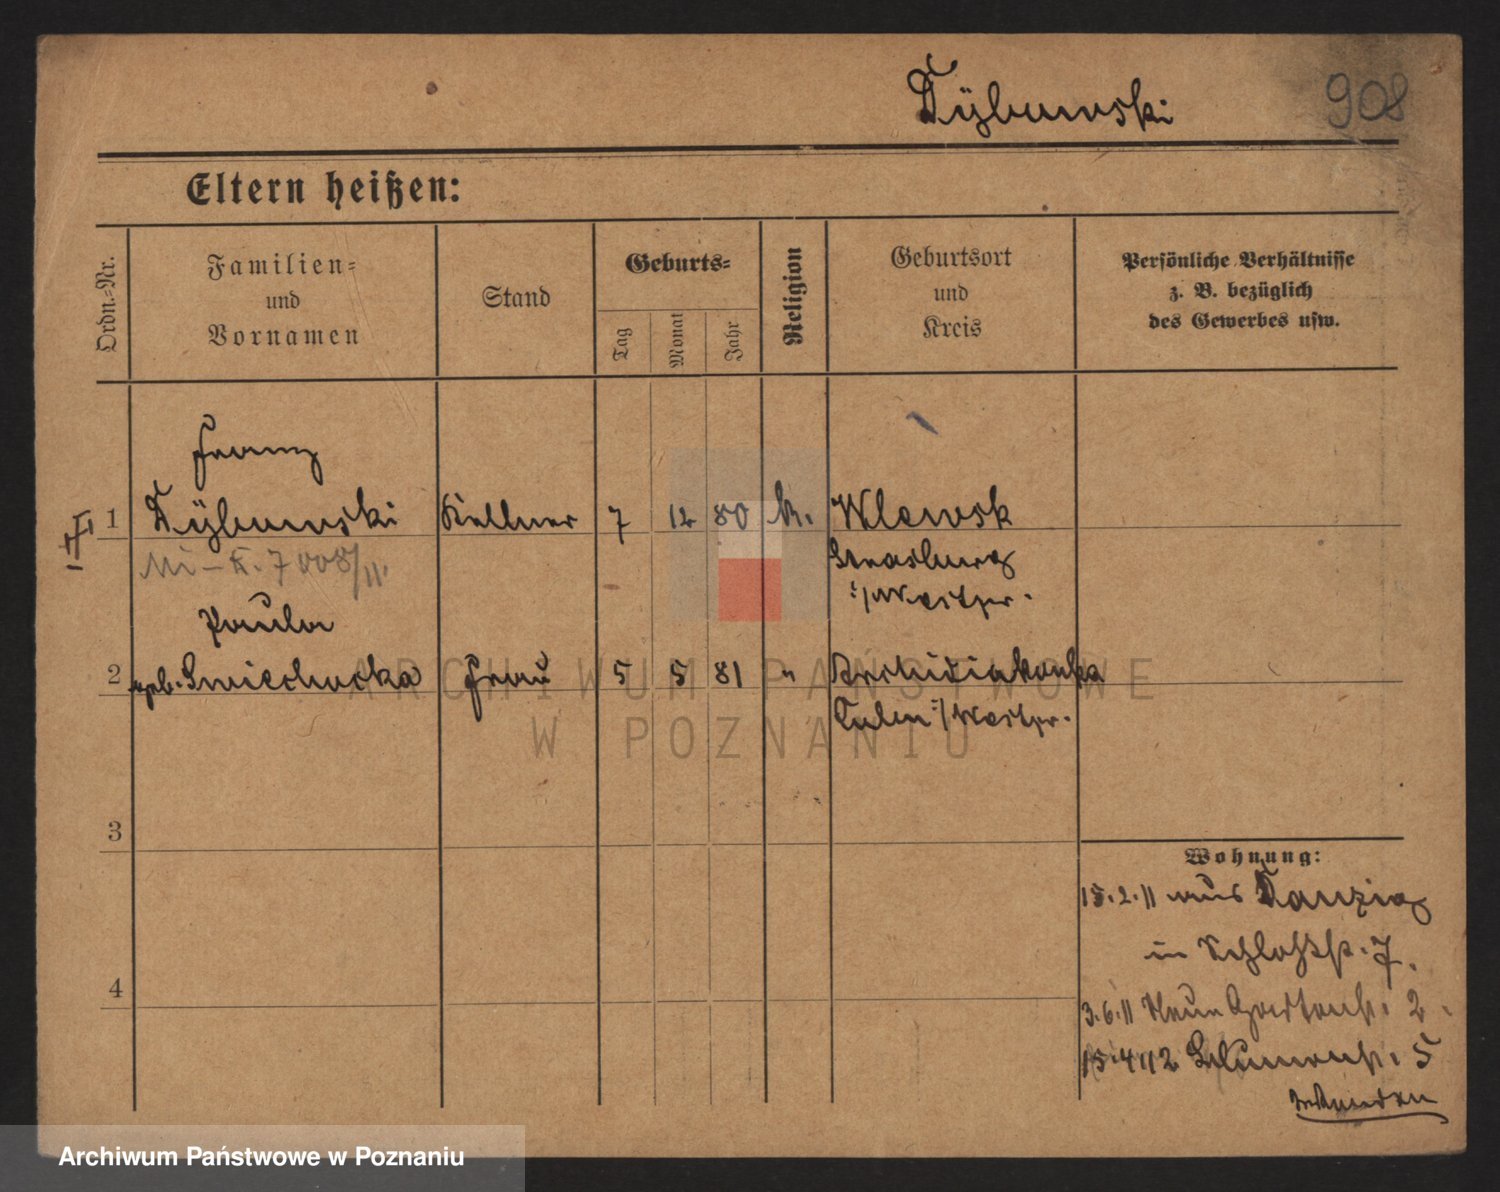 Dÿbowski 908
Eltern heißen:
Ordn.=Nr.
Familien=
und
Vornamen
Stand
Geburts=
Tag
Monat
Jahr
Religion
Geburtsort
und
Kreis
Persönliche Verhältnisse
z. B. bezüglich
des Gewerbes usw.
Franz
1 Dÿbowski Kellner 7 12 80 k. Wlewsk
Strasburg
i/Westpr.
Paula
2 geb. Smiechocka Frau 5 5 81 " Archidiakonka
Culm i/Westpr.
3
4
Wohnung:
15.2.11 aus Danzig
in Schloßstr. 7.
3.6.11 Neue Gartenstr. 2.
15.4.12 Blumenstr. 5
ARCHIWUM PAŃSTWOWE
W POZNANIU
Archiwum Państwowe w Poznaniu